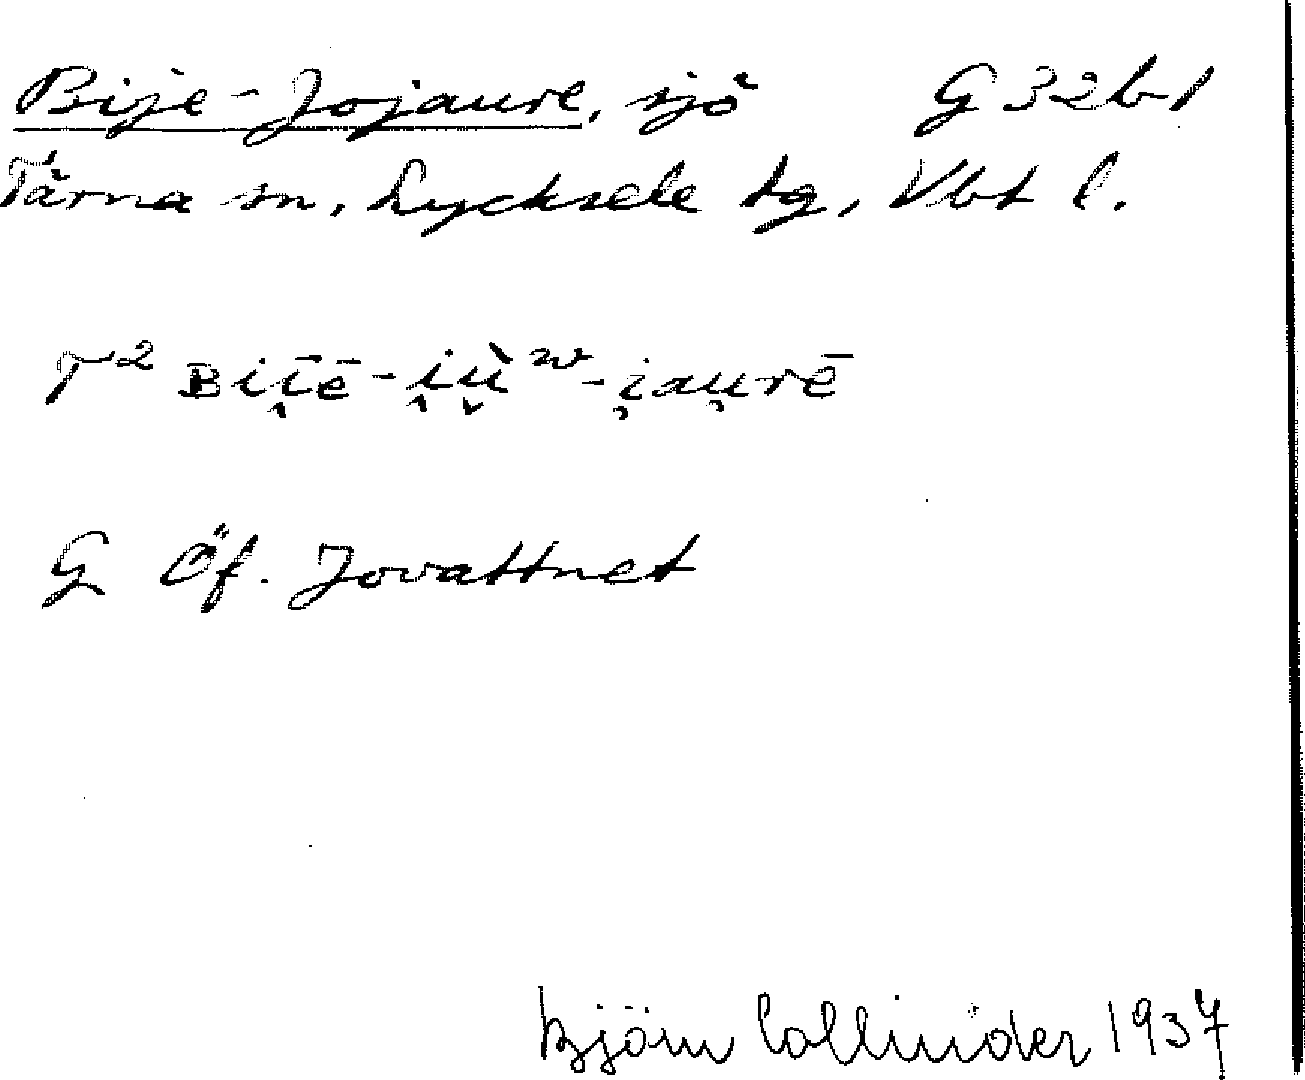 Bije-Jojaure, sjö G 32b1
Tärna sn, Lycksele tg, Vbt l.
T² ʙii̯ē-i̯ùʷ-i̯au̯rē
G Öf. Jovattnet
Björn Collinder 1937